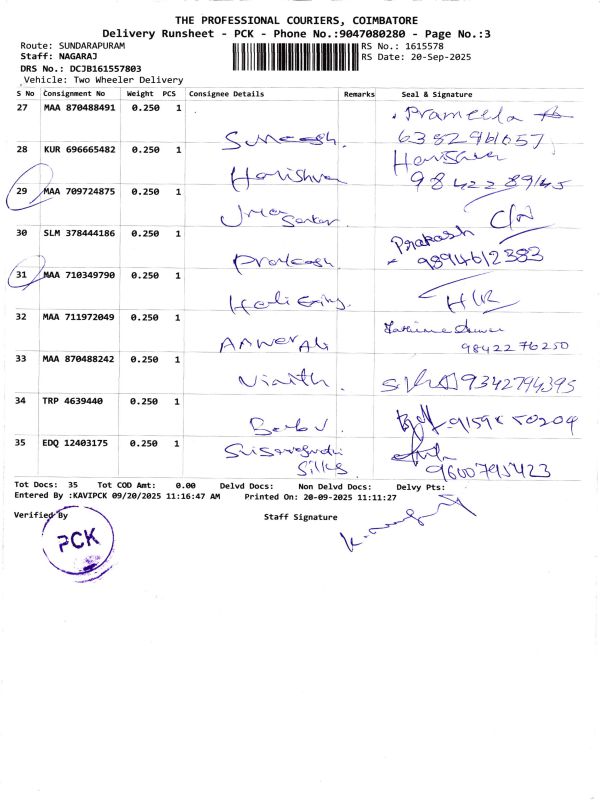 THE PROFESSIONAL COURIERS, COIMBATORE
Delivery Runsheet - PCK - Phone No.:9047080280 - Page No.:3
Route: SUNDARAPURAM RS No.: 1615578
Staff: NAGARAJ RS Date: 20-Sep-2025
DRS No.: DCJB161557803
Vehicle: Two Wheeler Delivery
S No Consignment No Weight PCS Consignee Details Remarks Seal & Signature
27 MAA 870488491 0.250 1 Prameela
Sureash. 6382961657
28 KUR 696665482 0.250 1
Harishva 9842289145
29 MAA 709724875 0.250 1 C/N
Sankar
30 SLM 378444186 0.250 1 Prakash
Prakash. 9894612383
31 MAA 710349790 0.250 1 H/R
32 MAA 711972049 0.250 1
Anwer Ali 9842276250
33 MAA 870488242 0.250 1
9342794395
34 TRP 4639440 0.250 1
Babu
35 EDQ 12403175 0.250 1
Silks 9600795423
Tot Docs: 35 Tot COD Amt: 0.00 Delvd Docs: Non Delvd Docs: Delvy Pts:
Entered By :KAVIPCK 09/20/2025 11:16:47 AM Printed On: 20-09-2025 11:11:27
Verified By Staff Signature
PCK